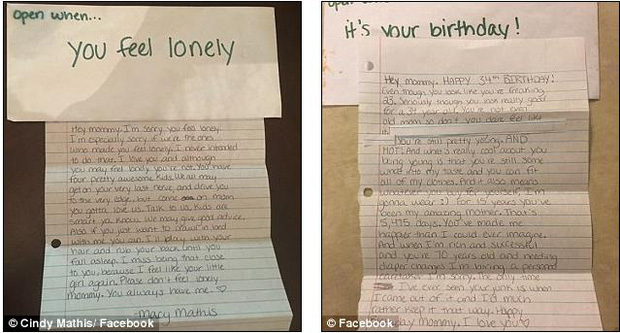 open when...
you feel lonely
Hey mommy. I'm sorry you feel lonely.
I'm especially sorry if we're the ones
who made you feel lonely. I never intended
to do that. I love you and although
you may feel lonely you're not. You have
four pretty awesome kids. We all may
get on your very last nerve, and drive you
to the very edge, but come on mom
you gotta love us. Talk to us. Kids are
smart ya know. We may give good advice.
Also if you just want to crawl in bed
with me you can. I'll play with your
hair and rub your back until you
fall asleep. I miss being that close
to you, because I feel like your little
girl again. Please don't feel lonely
mommy. You always have me. ♡
-Mary Mathis
© Cindy Mathis/ Facebook
it's your birthday!
Hey mommy. HAPPY 34th BIRTHDAY!
Even though you look like you're freaking
23. Seriously though you look really good
for a 34 year old. You're not even
old mom so don't you dare feel like
it.
You're still pretty young. AND
HOT. And what's really cool about you
being young is that you're still some
what into my taste and you can fit
all of my clothes. And it also means
whatever you buy for yourself, I'm
gonna wear :) For 15 years you've
been my amazing mother. That's
5,475 days. You've made me
happier than I could ever imagine.
And when I'm rich and successful
and you're 70 years old and needing
diaper changes I'm hiring a personal
caretaker. I'm sorry the only time
I've ever seen your junk is when
I came out of it and I'd much
rather keep it that way. Happy
Birthday Mommy. I love you ♡
© Facebook